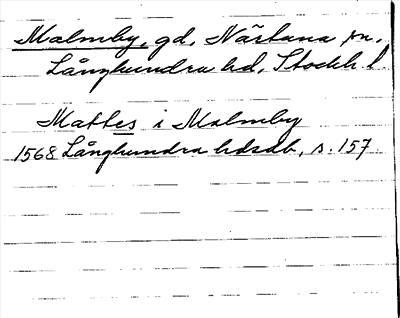 Malmby, gd, Närtuna sn,
Långhundra hd, Stockh. l.
Mattes i Malmby
1568 Långhundra hdsdb, s. 157.